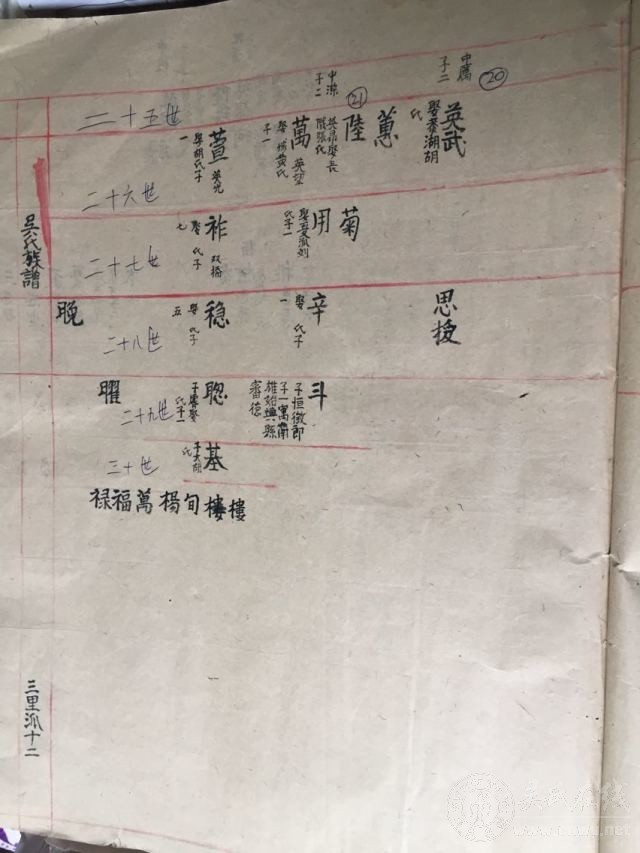 ⑳
中鷹
子二
英武
娶養湖胡
氏
蕙
㉑
中漴
子二
陸
英昂娶長
隴張氏
萬
英望
娶 黄氏
子一
萱
英光
娶胡氏子
一
二十五世
菊
用
娶 派刘
氏子一
祚
双桥
娶 氏子
七
二十六世
思授
辛
娶 氏子
一
稳
娶 氏子
五
晚
二十七世
斗
子恒徵郎
子一寓南
雄始興縣
審德
聪
娶
氏子一
曜
二十八世
基
子大胡
氏
二十九世
三十世
禄福萬 楊旬 樓樓
吴氏族譜
三里派十二